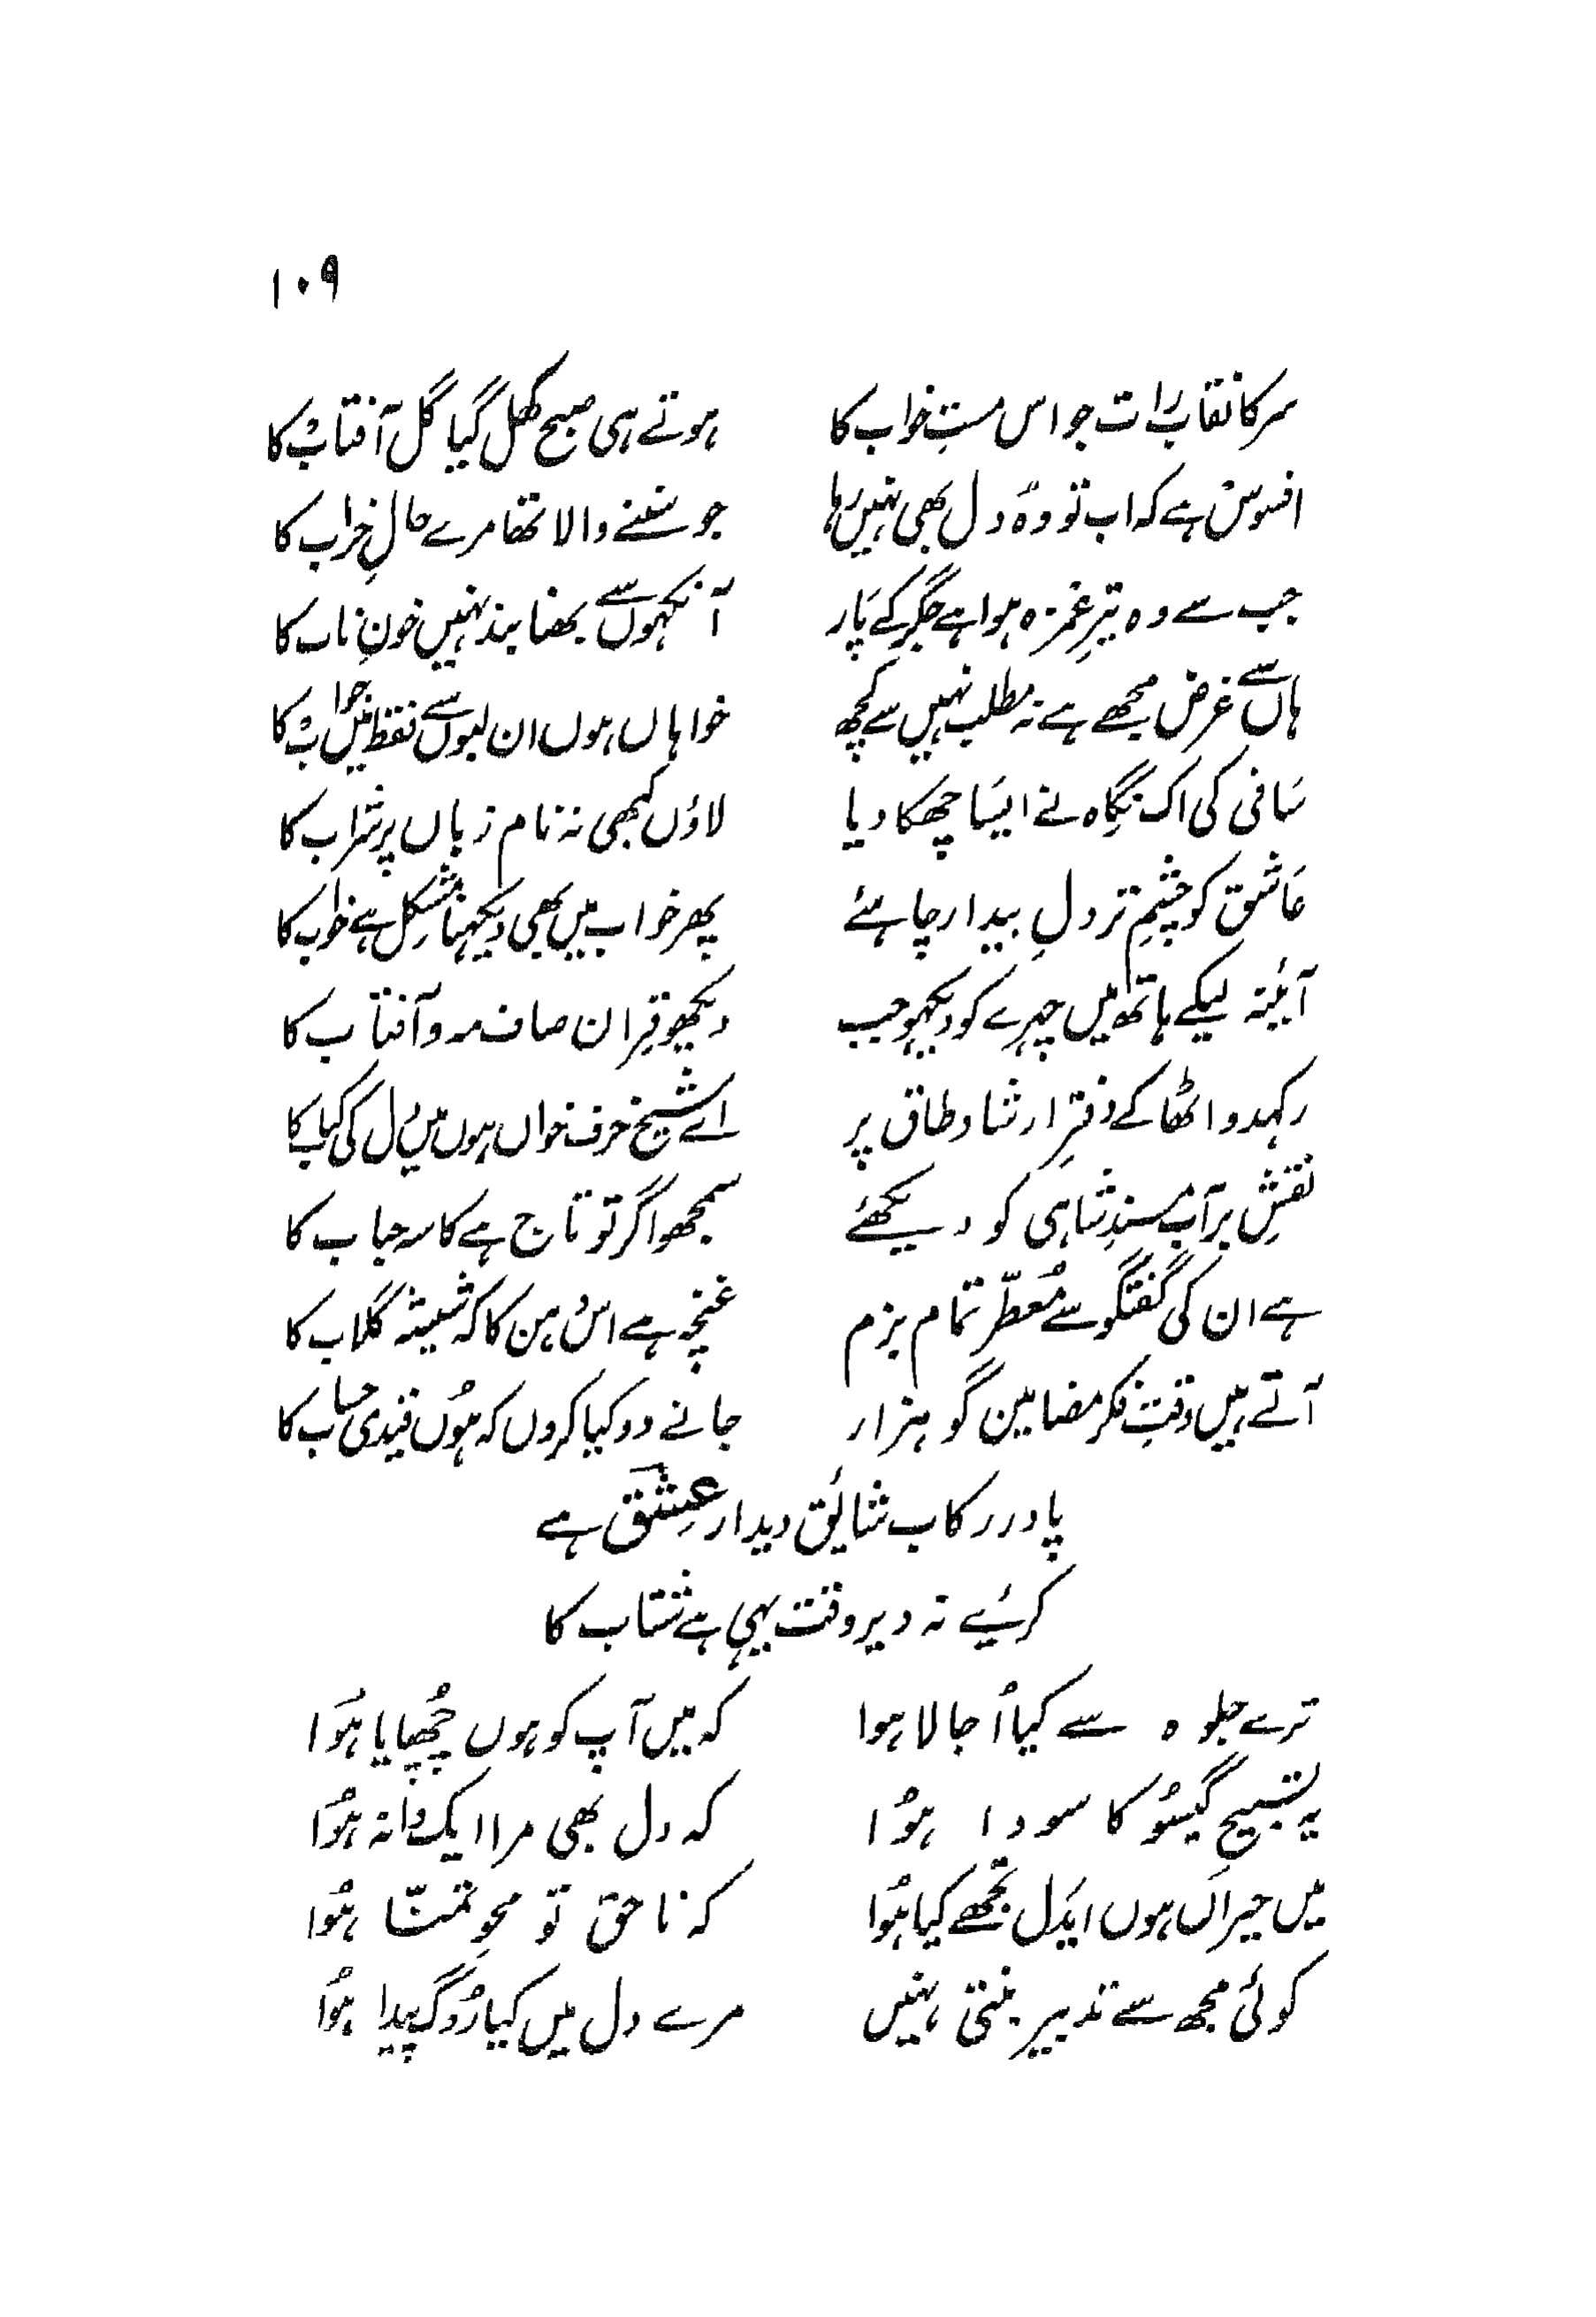 ۱۰۹
سرکا نقاب رات جو اس مستِ خواب کا ہوتے ہی صبح کھل گیا گل آفتاب کا
افسوس ہے کہ اب تو وہ دل بھی نہیں رہا جو سننے والا تھا مرے حالِ خراب کا
جب سے وہ تیرِ غمزہ ہوا ہے جگر کے پار آنکھوں سے بھنا بند نہیں خونِ ناب کا
ہاں سے غرض مجھے ہے نہ مطلب نہیں سے کچھ خواہاں ہوں ان لبوں سے فقط میں جواب کا
ساقی کی اک نگاہ نے ایسا چھکا دیا لاؤں کبھی نہ نام زباں پر شراب کا
عاشق کو چشمِ تر دلِ بیدار چاہئے پھر خواب میں بھی دیکہنا مشکل ہے خواب کا
آئینہ لیکے ہاتھ میں چہرے کو دیکہو جب دیکھو قِران صاف مہ و آفتاب کا
رکہدو اٹھا کے دفترِ ارشاد طاق پر اے شیخ حرف خواں ہوں میں دل کی کتاب کا
نقشِ بر آب مسندِ شاہی کو دیکھئے سمجھو اگر تو تاج ہے کاسہ حباب کا
ہے ان کی گفتگو سے مُعطّر تمام بزم غنچہ ہے اس دہن کا کہ شیشہ گلاب کا
آتے ہیں وقتِ فکر مضامین گو ہزار جانے دو کیا کروں کہ ہُوں قیدی حساب کا
پا در رکاب شائق دیدار عِشق ہے
کرئیے نہ دیر وقت یہی ہے شتاب کا
ترے جلوہ سے کیا اُجالا ہوا کہ میں آپ کو ہوں چُھپایا ہُوا
یہ تسبیحِ گیسُو کا سودا ہُوا کہ دل بھی مرا ایک دانہ ہُوا
میں حیراں ہوں ایدَل تجُھے کیا ہُوا کہ ناحق تو محوِ تمنّا ہُوا
کوئی مجھ سے تدبیر بنتی نہیں مرے دل میں کیا رُوگ پیدا ہُوا